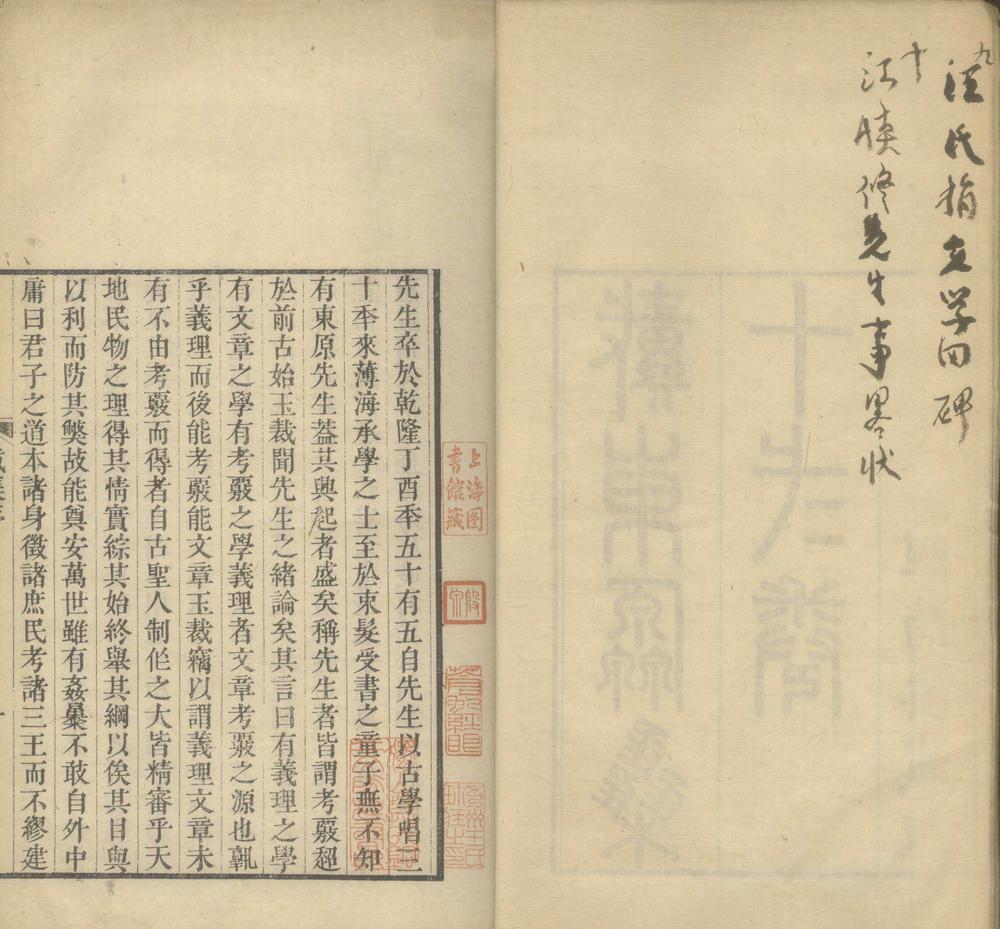 九 汪氏捐立学田碑
十 江慎修先生事畧状
上海图
書館藏
先生卒於乾隆丁酉秊五十有五自先生以古學唱三
十秊來薄海承學之士至於束髮受書之童子無不知
有東原先生葢其興起者盛矣稱先生者皆謂考覈超
於前古始玉裁聞先生之緒論矣其言曰有義理之學
有文章之學有考覈之學義理者文章考覈之源也孰
乎義理而後能考覈能文章玉裁竊以謂義理文章未
有不由考覈而得者自古聖人制作之大皆精審乎天
地民物之理得其情實綜其始終舉其綱以俟其目與
以利而防其獘故能奠安萬世雖有姦暴不敢自外中
庸曰君子之道本諸身徵諸庶民考諸三王而不繆建